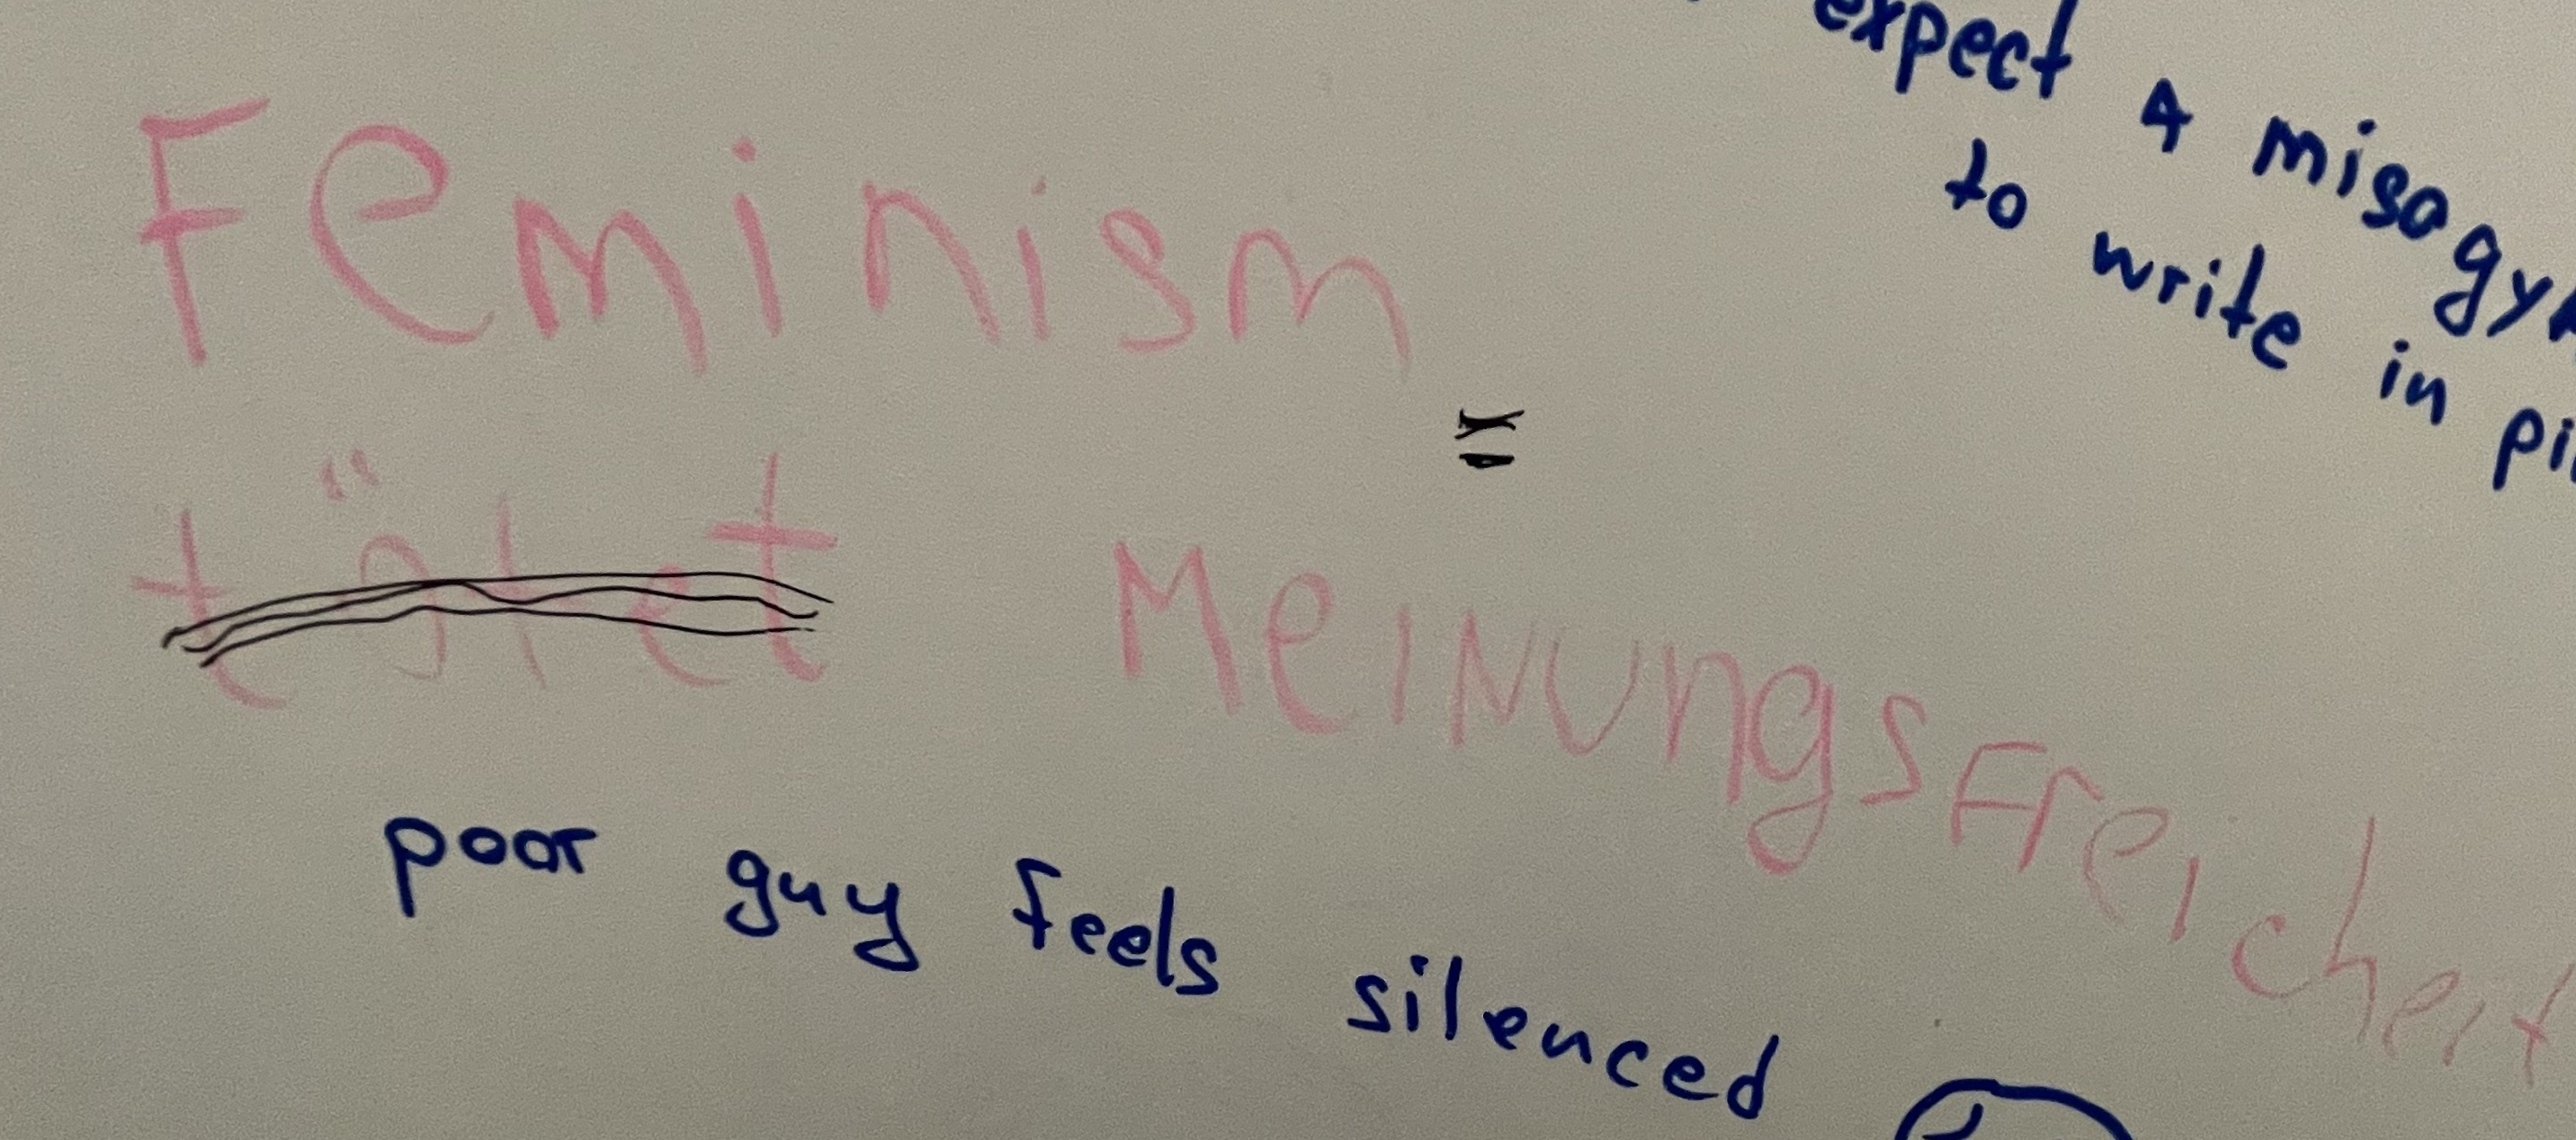 expect a misogyn
to write in pi
Feminism
=
tötet Meinungsfreicheit
poor guy feels silenced